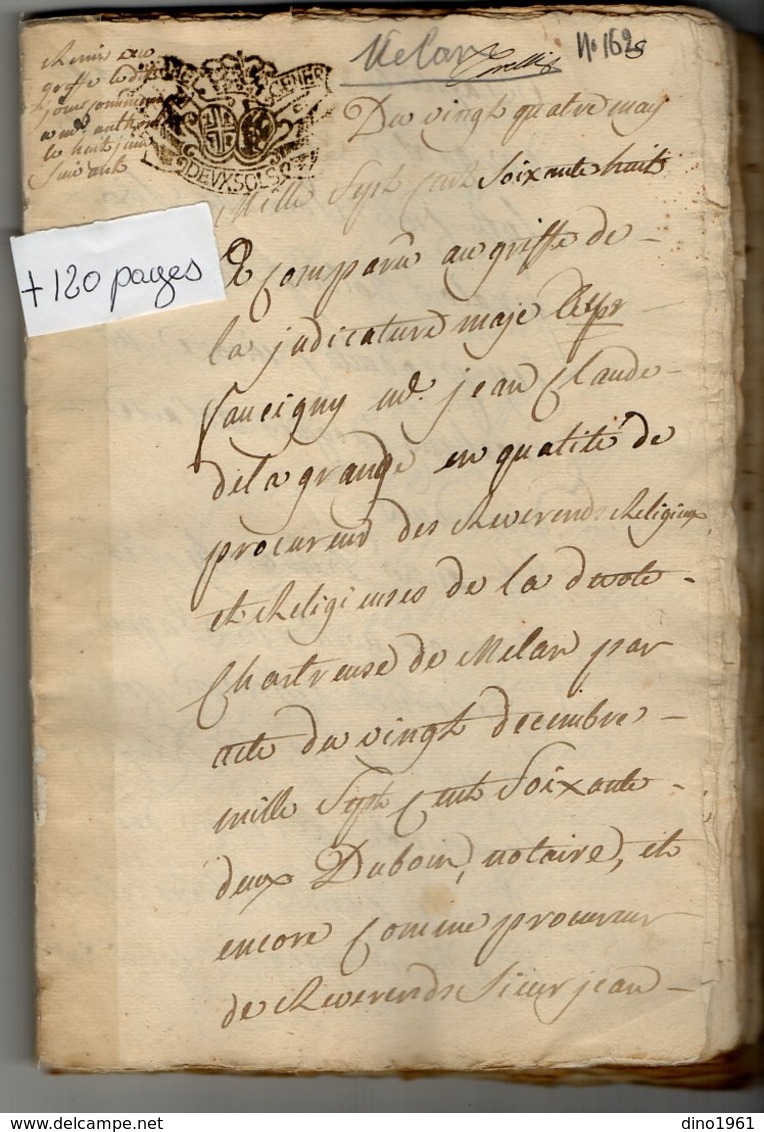 Melan
N° 162
remis au
greffe le dit
jour
le huit juin
suivant
DEVX SOLS
Du vingt quatre may
Mille Sept Cent Soixante huit
+ 120 pages
A Comparû au griffe de
la judicature maje
faucigny me. jean Claude
dela grange en qualité de
procureur des Reverends Religieux
et Religieuses de la devote
Chartreuse de Melan par
acte du vingt decembre
mille Sept Cent Soixante
deux Duboin, notaire, et
encore Comme procureur
de Reverends Sieur jean
delcampe.net
dino1961